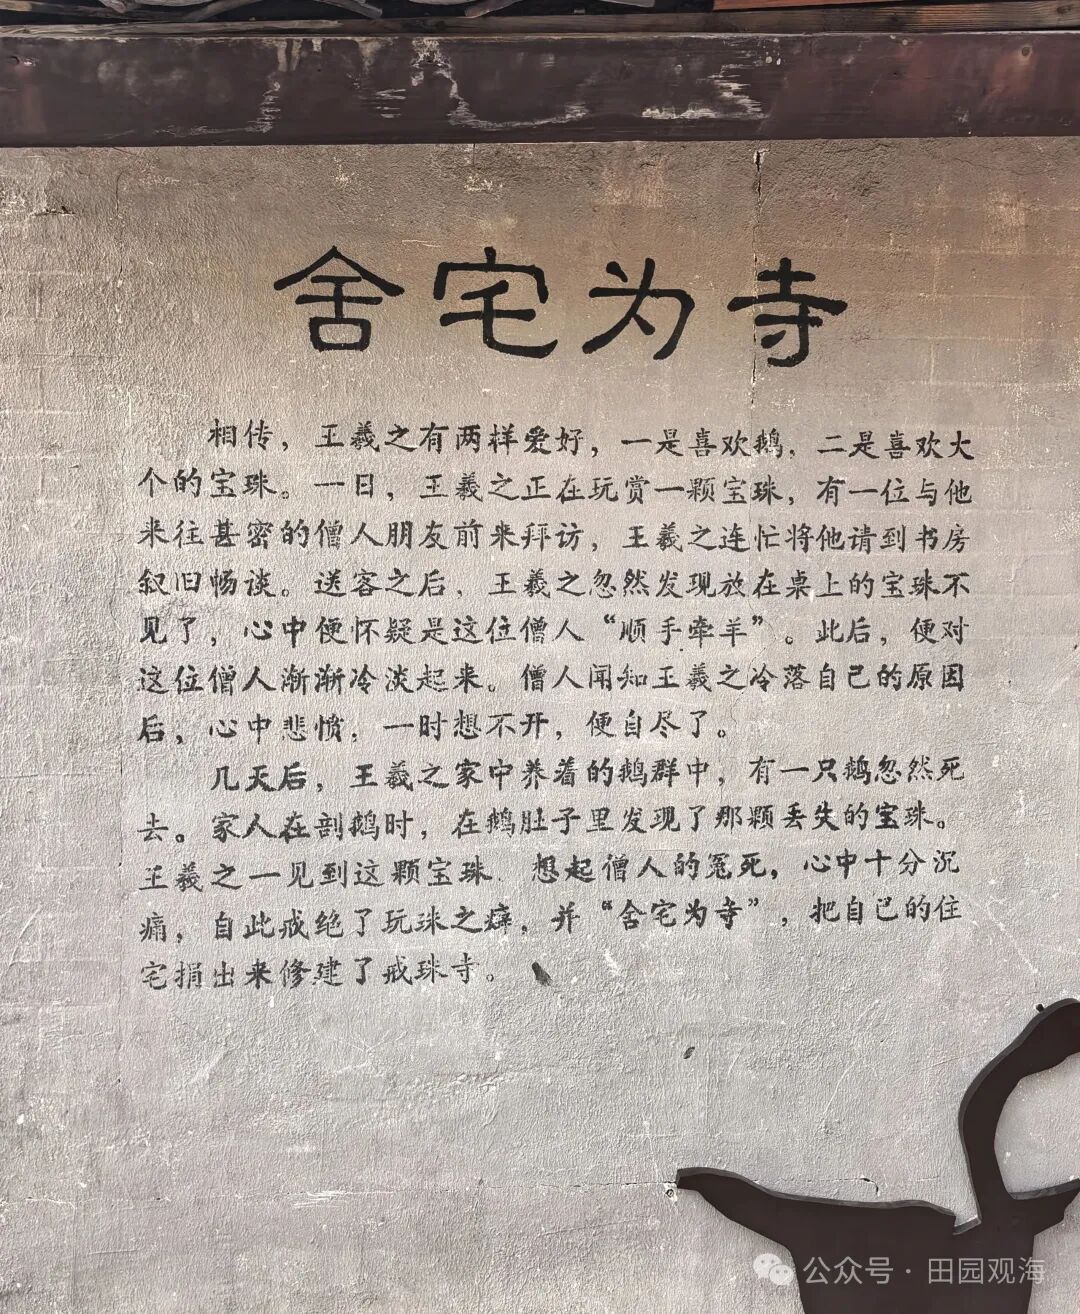 舍宅为寺
相传，王羲之有两样爱好，一是喜欢鹅，二是喜欢大
个的宝珠。一日，王羲之正在玩赏一颗宝珠，有一位与他
来往甚密的僧人朋友前来拜访，王羲之连忙将他请到书房
叙旧畅谈。送客之后，王羲之忽然发现放在桌上的宝珠不
见了，心中便怀疑是这位僧人“顺手牵羊”。此后，便对
这位僧人渐渐冷淡起来。僧人闻知王羲之冷落自己的原因
后，心中悲愤，一时想不开，便自尽了。
几天后，王羲之家中养着的鹅群中，有一只鹅忽然死
去。家人在剖鹅时，在鹅肚子里发现了那颗丢失的宝珠。
王羲之一见到这颗宝珠，想起僧人的冤死，心中十分沉
痛，自此戒绝了玩珠之癖，并“舍宅为寺”，把自己的住
宅捐出来修建了戒珠寺。
公众号·田园观海